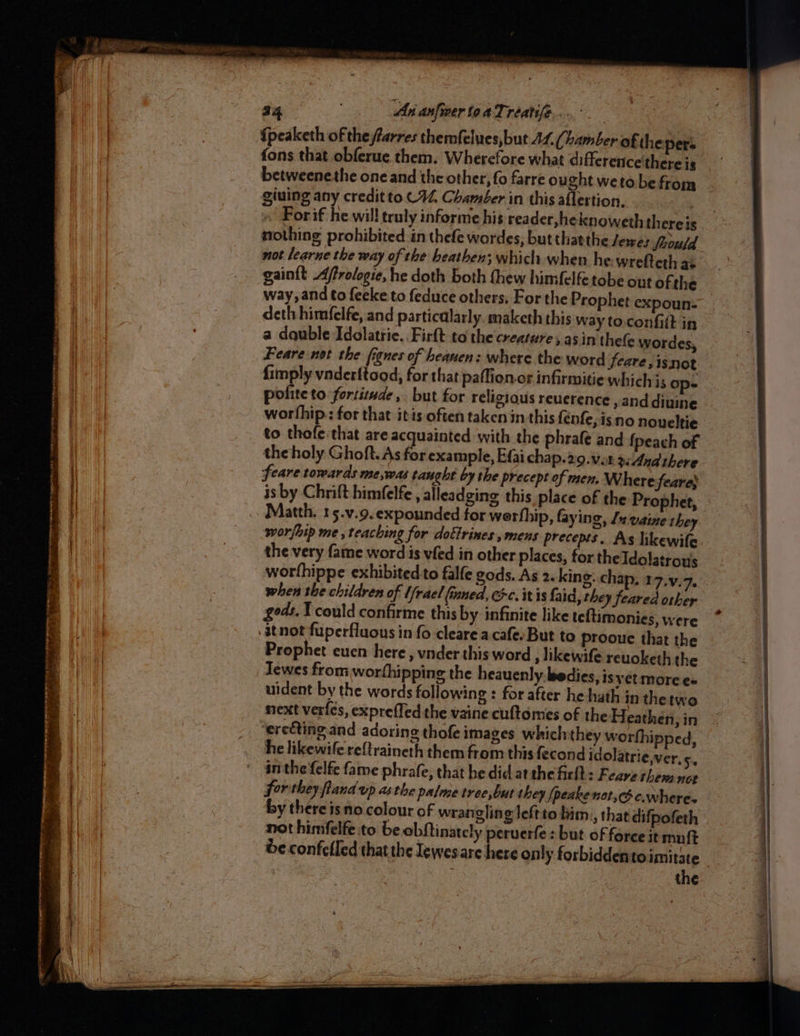 34 An answer to a Treatise
ſpeaketh of the ſtarres themſelues, but M. Chamber of the per-
ſons that obſerue them. Wherefore what difference there is
betweene the one and the other, ſo farre ought we to be from
giuing any credit to M. Chamber in this aſſertion.
For if he will truly informe his reader, he knoweth there is
nothing prohibited in theſe wordes, but that the Iewes ſhould
not learne the way of the heathen; which when he wreſteth a-
gainſt Aſtrologie, he doth both ſhew himſelfe to be out of the
way, and to ſeeke to ſeduce others. For the Prophet expoun-
deth himſelfe, and particularly maketh this way to conſiſt in
a double Idolatrie. Firſt to the creature, as in theſe wordes,
Feare not the ſignes of heauen: where the word feare, is not
ſimply vnderſtood, for that paſſion or infirmitie which is op-
poſite to fortitude, but for religious reuerence, and diuine
worſhip: for that it is often taken in this ſenſe, is no noueltie
to thoſe that are acquainted with the phraſe and ſpeach of
the holy Ghoſt. As for example, Eſai chap. 29. v. 13. And there
feare towards me, was taught by the precept of men. Where feare,
is by Chriſt himſelfe, alleadging this place of the Prophet,
Matth. 15. v. 9. expounded for worſhip, ſaying, In vaine they
worſhip me, teaching for doctrines, mens precepts. As likewiſe
the very ſame word is vſed in other places, for the Idolatrous
worſhippe exhibited to falſe gods. As 2. king. chap. 17. v. 7.
when the children of Iſrael ſinned, &c. it is ſaid, they feared other
gods. I could confirme this by infinite like teſtimonies, were
it not ſuperfluous in ſo cleare a caſe. But to prooue that the
Prophet euen here, vnder this word, likewiſe reuoketh the
Iewes from worſhipping the heauenly bodies, is yet more e-
uident by the words following: for after he hath in the two
next verſes, expreſſed the vaine cuſtomes of the Heathen, in
erecting and adoring thoſe images which they worſhipped,
he likewiſe reſtraineth them from this ſecond idolatrie, ver. 5.
in the ſelfe ſame phraſe, that he did at the firſt: Feare them not
for they ſtand vp as the palme tree, but they ſpeake not, &c. where-
by there is no colour of wrangling left to him, that diſpoſeth
not himſelfe to be obſtinately peruerſe: but of force it muſt
be confeſſed that the Iewes are here only forbidden to imitate
the